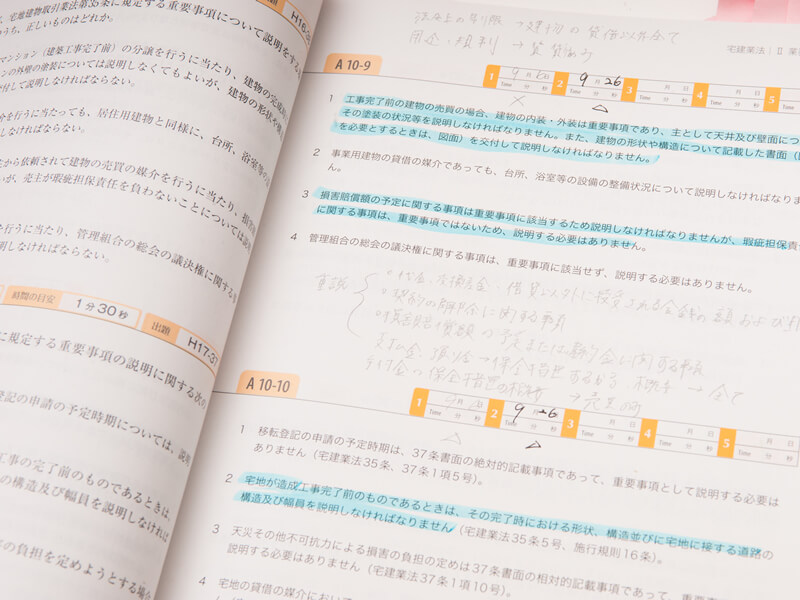 宅地建物取引業法第35条に規定する重要事項について説明をする
うち、正しいものはどれか。
H16-3
マンション(建築工事完了前)の分譲を行うに当たり、建物の完成時
ンの外壁の塗装については説明しなくてもよいが、建物の形状や構
付して説明しなければならない。
を行うに当たっても、居住用建物と同様に、台所、浴室等の
なければならない。
主から依頼されて建物の売買の媒介を行うに当たり、損害
いが、売主が瑕疵担保責任を負わないことについては説
行うに当たり、管理組合の総会の議決権に関する
ければならない。
時間の目安 1分30秒 出題 H17-3
に規定する重要事項の説明に関する次の
登記の申請の予定時期については、説明
工事の完了前のものであるときは、
の構造及び幅員を説明しなければ
の負担を定めようとする場
宅建業法│Ⅱ 業
法令上の制限 → 建物の貸借以外全て
A 10-9
1 月 日 Time 分 秒 2 9月26日 Time 分 秒 3 月 日 Time 分 秒 4 月 日 Time 分 秒 5
1 工事完了前の建物の売買の場合、建物の内装・外装は重要事項であり、主として天井及び壁面につ
その塗装の状況等を説明しなければなりません。また、建物の形状や構造について記載した書面(
を必要とするときは、図面)を交付して説明しなければなりません。
2 事業用建物の貸借の媒介であっても、台所、浴室等の設備の整備状況について説明しなければなりま
ん。
3 損害賠償額の予定に関する事項は重要事項に該当するため説明しなければなりませんが、瑕疵担保責
に関する事項は、重要事項ではないため、説明する必要はありません。
4 管理組合の総会の議決権に関する事項は、重要事項に該当せず、説明する必要はありません。
重説
代金、交換差金、借賃以外に授受される金銭の額および
契約の解除に関する事項
損害賠償額の予定または違約金に関する事項
A 10-10
1 月 日 Time 分 秒 2 9月26日 Time 分 秒 3 月 日 Time 分 秒 4 月 日 Time 分 秒 5 月 日 Time 分 秒
1 移転登記の申請の予定時期は、37条書面の絶対的記載事項であって、重要事項として説明する必要は
ありません(宅建業法35条、37条1項5号)。
2 宅地が造成工事完了前のものであるときは、その完了時における形状、構造並びに宅地に接する道路の
構造及び幅員を説明しなければなりません(宅建業法35条5号、施行規則16条)。
3 天災その他不可抗力による損害の負担の定めは37条書面の相対的記載事項であって、重要事
説明する必要はありません(宅建業法37条1項10号)。
4 宅地の貸借の媒介において